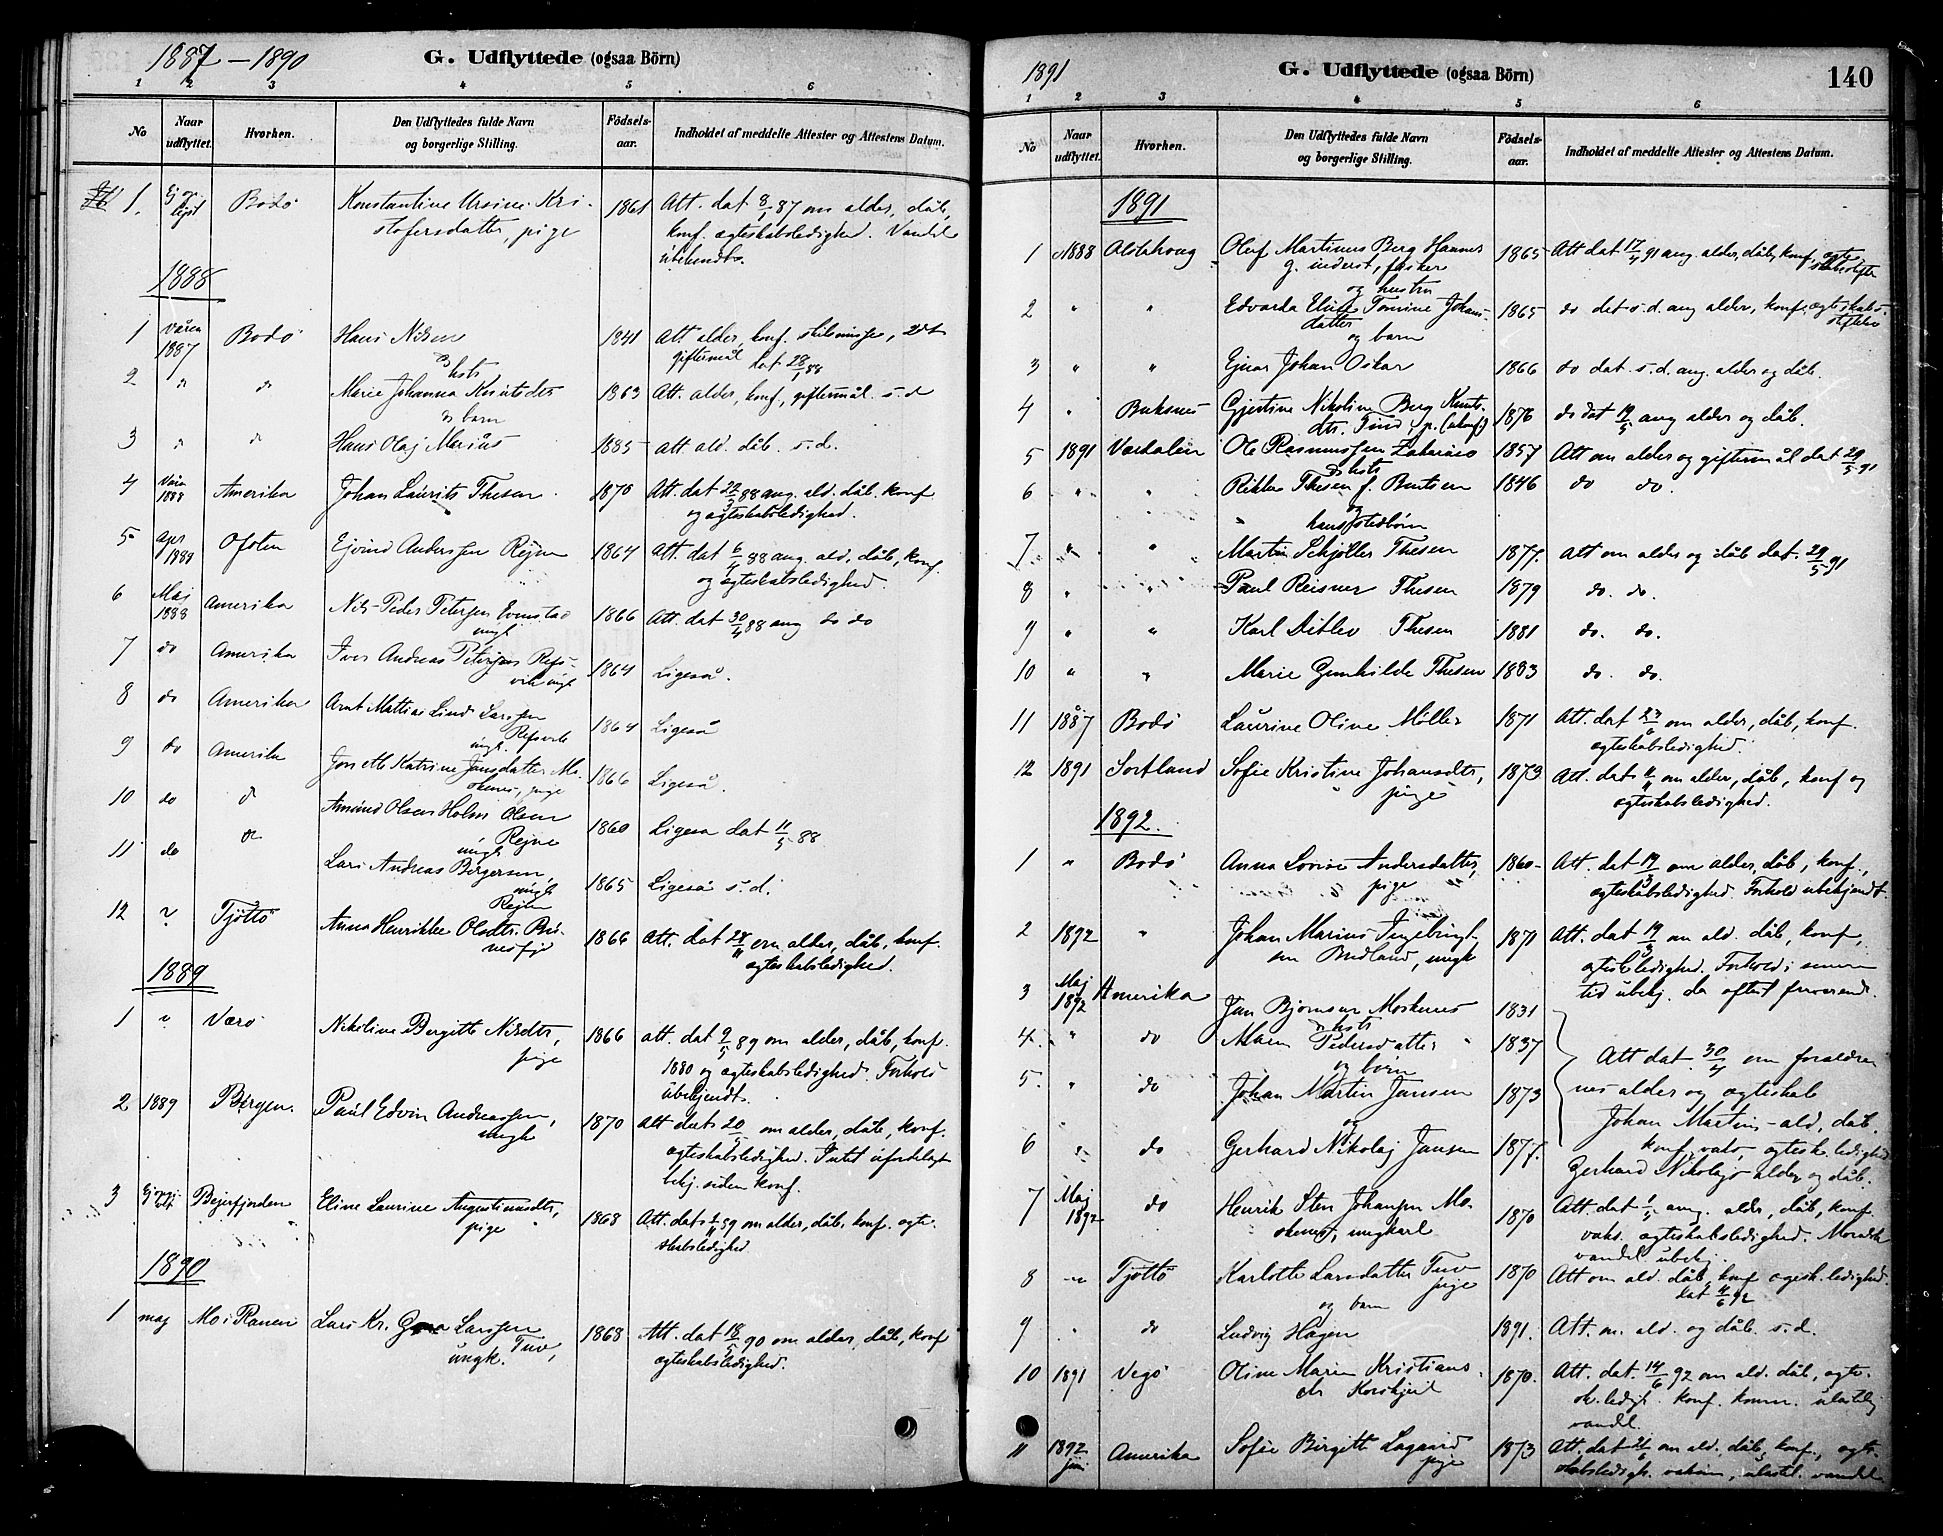 1887 – 1890
G. Udflyttede (ogsaa Börn)
1 2 3 4 5 6
No
Naar udflyttet.
Hvorhen.
Den Udflyttedes fulde Navn og borgerlige Stilling.
Födselsaar.
Indholdet af meddelte Attester og Attestens Datum.
1. Bodö Konstantine Ursine Kri- 1861 Att. dat 8/1 87 om alder, dåb,
stofersdatter, pige konf. ægteskabsledighed. Vandel
ubekendt.
1888
1 Våren 1887 Bodö Hans Nilsen 1841 Att. alder, konf. skilsmisse, 2det
giftermål dat 28/1 88
& hst
2 " " Marie Johanna Knutsdtr 1863 Att. alder, konf, giftermål. s.d
& barn
3 " " Hans Olaj Marius 1885 att ald. dåb. s.d.
4 1888 Amerika Johan Laurits Thesen 1870 Att. dat 22/3 88 ang. ald. dåb. konf
og ægteskabsledighed.
5 Apr 1888 Ofoten Ejvind Anderssen Rejne 1864 Att. dat 6/4 88 ang. ald. dåb, konf.
og ægteskabsledighed.
6 Maj 1888 Amerika Nils Peder Petersen Evenstad 1866 Att. dat 30/4 88 ang do do
ungk
7 do Amerika Iver Andreas Petersen Refs- 1864 Ligeså.
vik ungk
8 do Amerika Arnt Mattias Lind Larssen 1864 Ligeså
ungk. Refsvik
9 do Amerika Katrine Jansdatter Mo- 1866 Ligeså.
skenes, pige
10 do d Amund Olsen Holm Olsen 1860 Ligeså dat 11/5 88
ungk Rejne
11 do Lars Andreas Birgersen, 1865 Ligeså s.d.
ungk
Rejne
12 " Tjöttö Anna Henrikke Olsdtr. 1866 Att. dat 28/11 om alder, dåb, konf.
ægteskabsledighed.
1889
1 " Værö Nikoline Bergitte Nilsdtr, 1866 att. dat 9/5 89 om alder, dåb, konf.
pige 1880 og ægteskabsledighed. Forhold
ubekjendt.
2 1889 Bergen. Paul Edvin Andreassen, 1870 Att dat 20/5 om alder, dåb, konf.
ungk ægteskabsledighed. Intet ufordelagt
bekj. siden konf.
3 Bejerfjorden Eline Laurine Augustinusdtr, 1868 Att. dat 89 om alder, dåb, konf. ægte-
pige skabsledighed
1890
1 maj Mo i Ranen Lars Kr. Larssen 1868 Att. dat 18/5 90 om alder, dåb, konf
ungk. Tuv, ægteskabsledighed.
1891
G. Udflyttede (ogsaa Börn)
140
1 2 3 4 5 6
No
Naar udflyttet.
Hvorhen.
Den Udflyttedes fulde Navn og borgerlige Stilling.
Födselsaar.
Indholdet af meddelte Attester og Attestens Datum.
1891
1 1888 Alstahoug Oluf Martinus Berg Hannes 1865 Att dat 17/4 91 ang. alder, dåb, konf, ægte-
g. inderst, fisker
og hustru
2 " " Edvarda Elise Tomine Johans- 1865 do dat s.d. ang alder, konf. ægteskabs-
datter
og barn
3 " " Ejnar Johan Oskar 1866 do dat. s.d. ang. alder og dåb.
4 " Buksnes Gjertine Nikoline Berg Knuts- 1876 do dat 19/5 ang alder og dåb.
dtr. Tind, p. (ukonf)
5 1891 Værdalen Ole Rasmussen Zakarias 1857 Att om alder og giftermål dat 29/5 91
& hst
6 " " Rikka Thesen f. Bentsen 1846 do do.
og
hans stedbörn
7 " " Martin Schjölle Thesen 1877. Att om alder og dåb dat. 29/5 91
8 " " Paul Reisner Thesen 1879 do. do.
9 " " Karl Ditlev Thesen 1881 do. do.
10 " " Marie Gunhilde Thesen 1883 do. do.
11 1887 Bodö Laurine Oline Möller 1871 Att. dat 23 om alder, dåb, konf.
ægteskabsledighed.
12 1891 Sortland Sofie Kristine Johansdtr, 1873 Att. dat om alder, dåb, konf og
pige ægteskabsledighed.
1892.
1 " Bodö Anna Lovise Andersdatter, 1860 Att. dat 19/3 om alder, dåb, konf.,
pige ægteskabsledighed. Forhold ubekjendt.
2 1892 " Johan Marius Ingebrigt- 1871 Att. dat 19/3 om ald. dåb, konf,
sen Bredland, ungk ægteskbledighed. Forhold i senere
tid ubekj. da oftest fraværende.
3 Maj 1892 Amerika Jan Björnsen Moskenes 1831
& hst
4. " do Maren Pedersdatter 1837 Att dat. 30/4 om foræ​ldre-
og börn
5. " do Johan Martin Jansen 1873 nes alder og ægteskab
og Johan Martins – ald, dåb,
6 " do Gerhard Nikolaj Jansen 1877. konf, vaks, ægtesk.ledighed
Gerhard Nikolajs alder og dåb.
7 Maj 1892 do Henrik Sten Johansen Mo- 1870 Att. dat 1/5 ang. alder, dåb, konf.
skenes, ungkarl vaks. ægteskabsledighed. Moralsk
vandel ubekj
8 " Tjöttö Karlotte Larsdatter Tuv 1870 Att om ald. dåb, konf ægtesk.ledighed.
pige dat 4/6 92
og barn
9 " do Ludvig Hagen 1891. Att. m. ald. og dåb. s.d.
10 1891 Vegö Oline Maren Kristians- 1870. Att. dat. 14/6 92 om ald. dåb, ægte-
dtr sk.ledigh. konf. komm. ulastelig
vandel.
11 1892 juni Amerika Sofie Birgitte 1873 Att. dat om ald. dåb, konf., ægte-
pige skabsledigh. ulastel. vandel